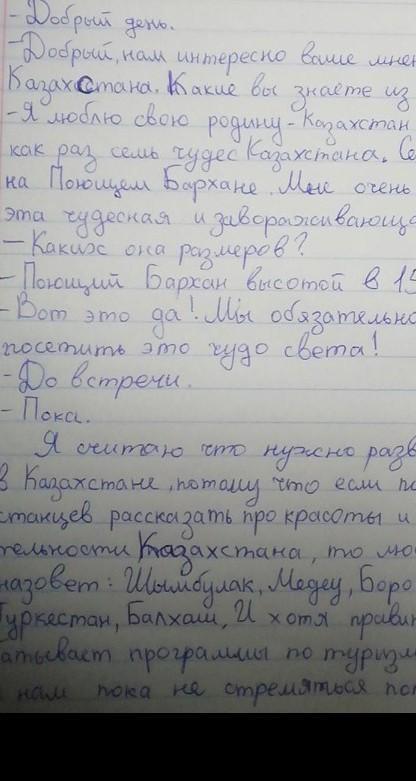 - Добрый день.
- Добрый, нам интересно ваше мнен
Казахстана. Какие вы знаете из
- Я люблю свою родину - Казахстан
как раз семь чудес Казахстана. Се
на Поющем Бархане. Мне очень
эта чудесная и завораживающа
- Каких она размеров?
- Поющий Бархан высотой в 15
- Вот это да! Мы обязательно
посетить это чудо света!
- До встречи.
- Пока.
Я считаю что нужно разв
в Казахстане, потому что если по
станцев рассказать про красоты и
тельности Казахстана, то лю
назовет: Шымбулак, Медеу, Боро
Туркестан, Балхаш, И хотя прави
атывает программы по туризм
нам пока не стремяться по